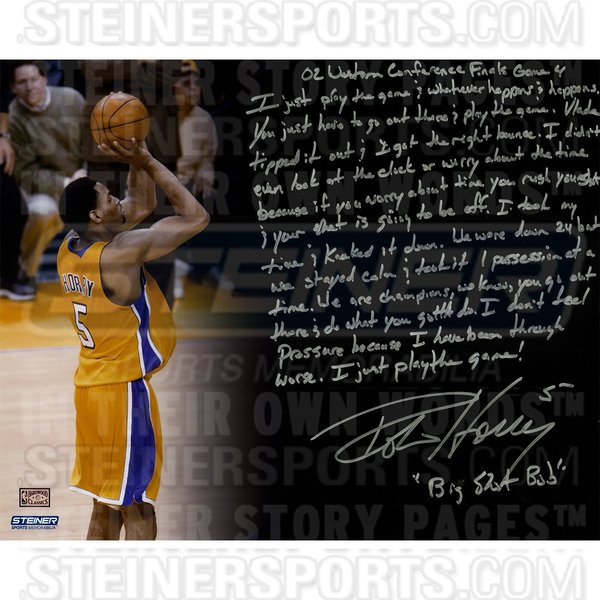 .STEINERSPORTS.COM
STEINER STORY PAGES™
.STEINERSPORTS.COM
IN THEIR OWN WORDS™
STEINER
SPORTS MEMORABILIA
IN THEIR OWN WORDS™
.STEINERSPORTS.COM
STEINER STORY PAGES™
.STEINERSPORTS.COM
HORRY
5
HARDWOOD CLASSICS
STEINER
SPORTS MEMORABILIA
02 Western Conference Finals Game 4
I just play the game & whatever happens & happens.
You just have to go out there & play the game. Vlade
tipped it out & I got the right bounce. I didn't
even look at the clock or worry about the time
because if you worry about time you rush your shot
& your shot is going to be off. I took my
time & knocked it down. We were down 24 but
we stayed calm & took it 1 possession at a
time. We are champions, we know, you go out
there & do what you gotta do. I don't feel
Pressure because I have been through
worse. I just play the game!
Robert Horry 5
"Big Shot Bob"